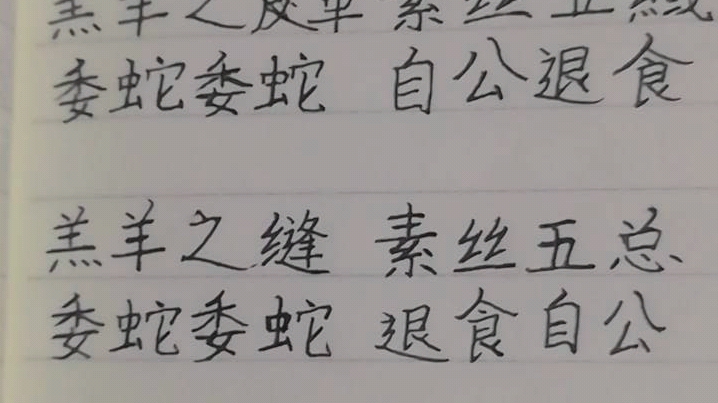 羔羊之皮革 素丝五
委蛇委蛇 自公退食
羔羊之缝 素丝五总
委蛇委蛇 退食自公